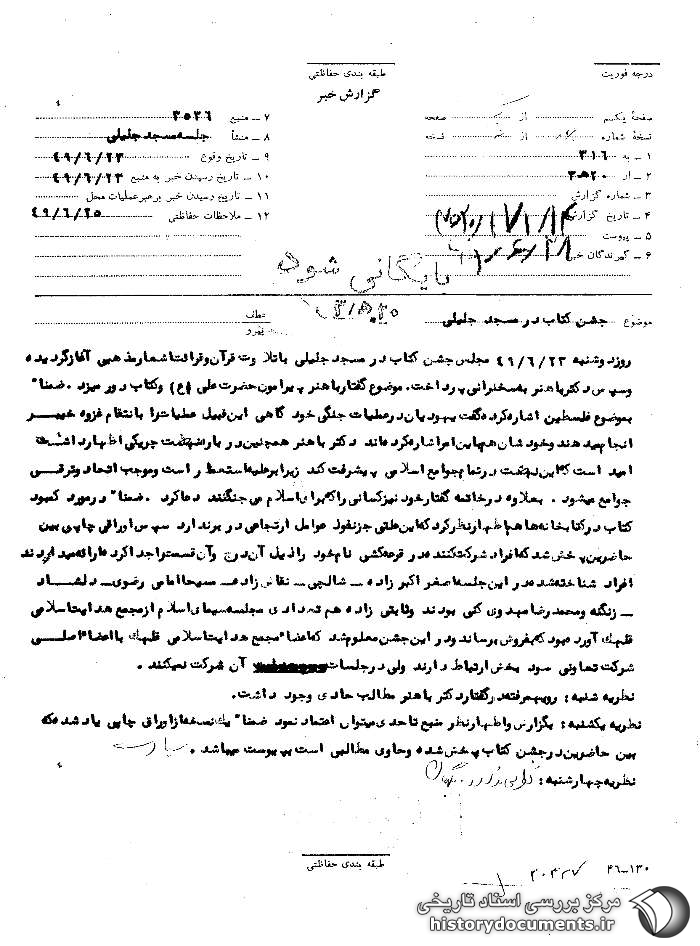 درجه فوریت
طبقه بندی حفاظتی
گزارش خبر
صفحهٔ یکم از صفحه
نسخهٔ شماره از نسخه
۱ ـ به ۳۱۶
۲ ـ از ۲۰ه۳
۳ ـ شماره گزارش
۴ ـ تاریخ گزارش
۵ ـ پیوست
۶ ـ گیرندگان خبر
۷ ـ منبع ۳۵۳۶
۸ ـ منشأ جلسه مسجد جلیلی
۹ ـ تاریخ وقوع ۴۹/۶/۲۳
۱۰ ـ تاریخ رسیدن خبر به منبع ۴۹/۶/۲۳
۱۱ ـ تاریخ رسیدن خبر برهبر عملیات محل
۱۲ ـ ملاحظات حفاظتی ۴۹/۶/۲۵
بایگانی شود
موضوع جشن کتاب در مسجد جلیلی
عطف
پیرو
روز دوشنبه ۴۹/۶/۲۳ مجلس جشن کتاب در مسجد جلیلی با تلاوت قرآن و قرائت اشعار مذهبی آغاز گردیده
و سپس دکتر باهنر به سخنرانی پرداخت. موضوع گفتار باهنر پیرامون حضرت علی (ع) و کتاب دور میزد. ضمنا"
بموضوع فلسطین اشاره کرده گفت یهودیان در عملیات جنگی خود گاهی این قبیل عملیات را با انتقام غزوه خیبر
انجام میدهند و خودشان هم باین امر اشاره کرده‌اند دکتر باهنر همچنین در باره نهضت چریکی اظهار داشت
امید است که این نهضت در تمام جوامع اسلامی پیشرفت کند زیرا بر علیه استعمار است و موجب اتحاد و ترقی
جوامع میشود. بعلاوه در خاتمه گفتار خود نیز کسانی را که برای اسلام می جنگند دعا کرد. ضمنا" در مورد کمبود
کتاب در کتابخانه‌ها هم اظهار نظر کرد که این علتی جز نفوذ عوامل ارتجاعی در بر ندارد سپس اوراقی چاپی بین
حاضرین پخش شد که افراد شرکت کننده در قرعه کشی نام خود را ذیل آن درج و آن قسمت را جدا کرده ارائه میدادند
افراد شناخته شده در این جلسه اصغر اکبر زاده ـ شالچی ـ نقاش زاده ـ مسیحا امامی رضوی ـ دلشاد
ـ زنگنه و محمد رضا مهدوی کنی بودند وثایقی زاده هم تعدادی مجله سیمای اسلام از مجمع هدایت اسلامی
قلهک آورده بود که بفروش برساند و در این جشن معلوم شد که اعضاء مجمع هدایت اسلامی قلهک با اعضاء اصلی
شرکت تعاونی سود بخش ارتباط دارند ولی در جلسات آن شرکت نمیکنند.
نظریه شنبه: رویهمرفته در گفتار دکتر باهنر مطالب حادی وجود داشت.
نظریه یکشنبه: بگزارش و اظهار نظر منبع تا حدی میتوان اعتماد نمود ضمنا" یک نسخه از اوراق چاپی یاد شده که
بین حاضرین در جشن کتاب پخش شده و حاوی مطالبی است به پیوست میباشد.
نظریه چهارشنبه:
طبقه بندی حفاظتی
۴۶ـ۱۳۰
مرکز بررسی اسناد تاریخی
historydocuments.ir